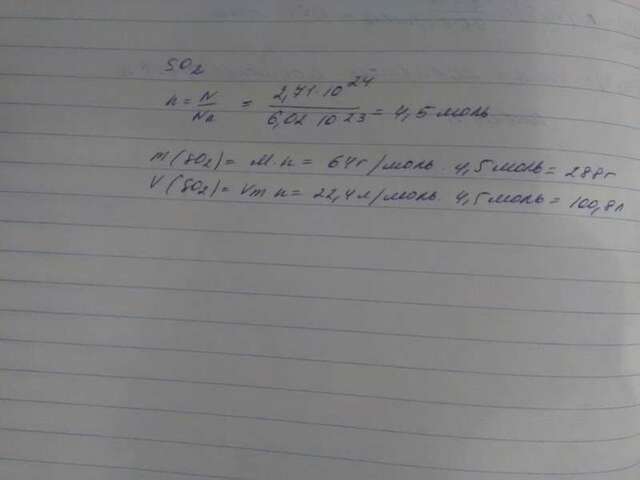 SO2
n = N/Na = 2,71·10^24/6,02·10^23 = 4,5 моль
m(SO2) = M·n = 64г/моль · 4,5 моль = 288г
V(SO2) = Vm n = 22,4 л/моль · 4,5 моль = 100,8л